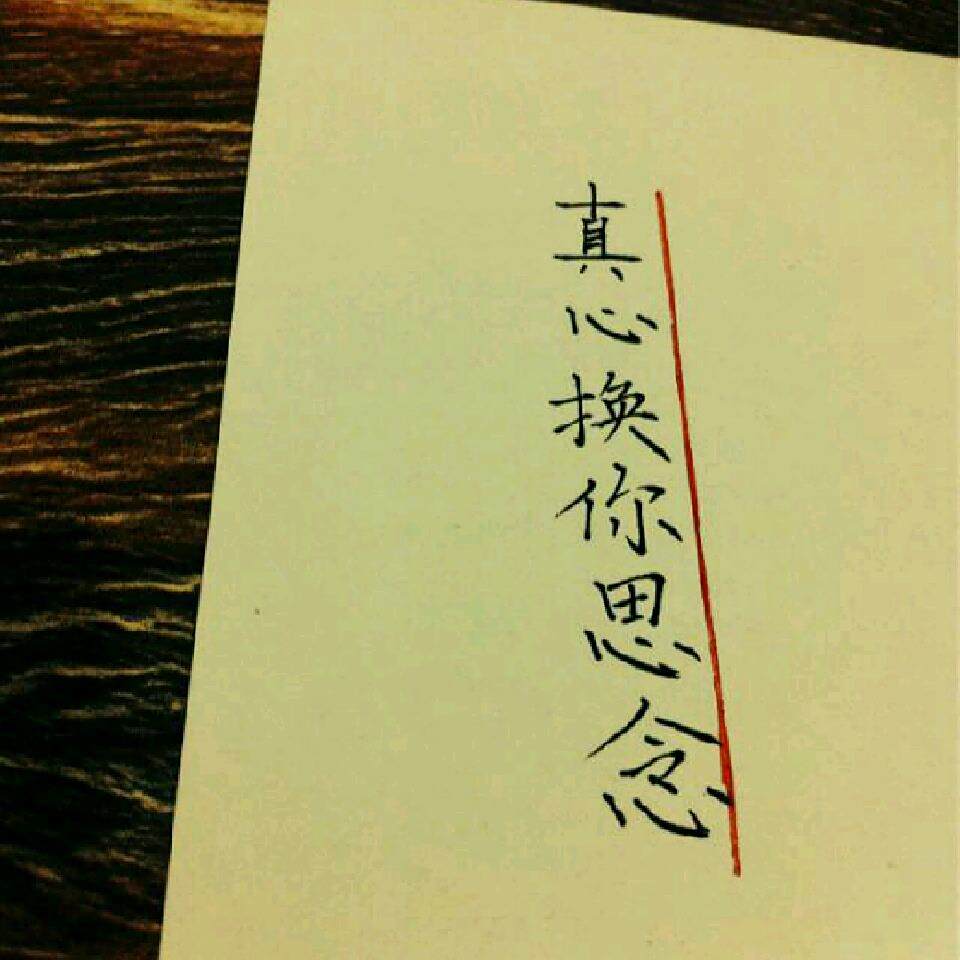 真心换你思念